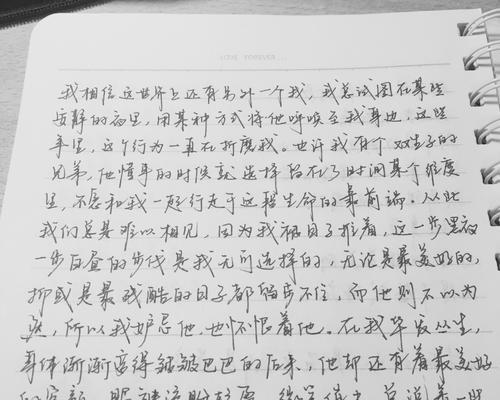 LOVE FOREVER...
我相信这世界上还有另外一个我,我总试图在某些
安静的夜里,用某种方式将他呼唤至我身边,这些
年里,这个行为一直在折磨我。也许我有个双生子的
兄弟,他懂事的时候就选择留在了时间某个维度
里,不愿和我一起行走于这趟生命的最前端。从此
我们总是难以相见,因为我被日子推着,这一步黑夜
一步白昼的步伐是我无可选择的,无论是最美好的,
抑或是最残酷的日子都留步不住,而他则不以为
然,所以我妒忌他,也怀恨着他。在我华发丛生,
身体渐渐变得皱皱巴巴的后来,他却还有着最美好
的容颜